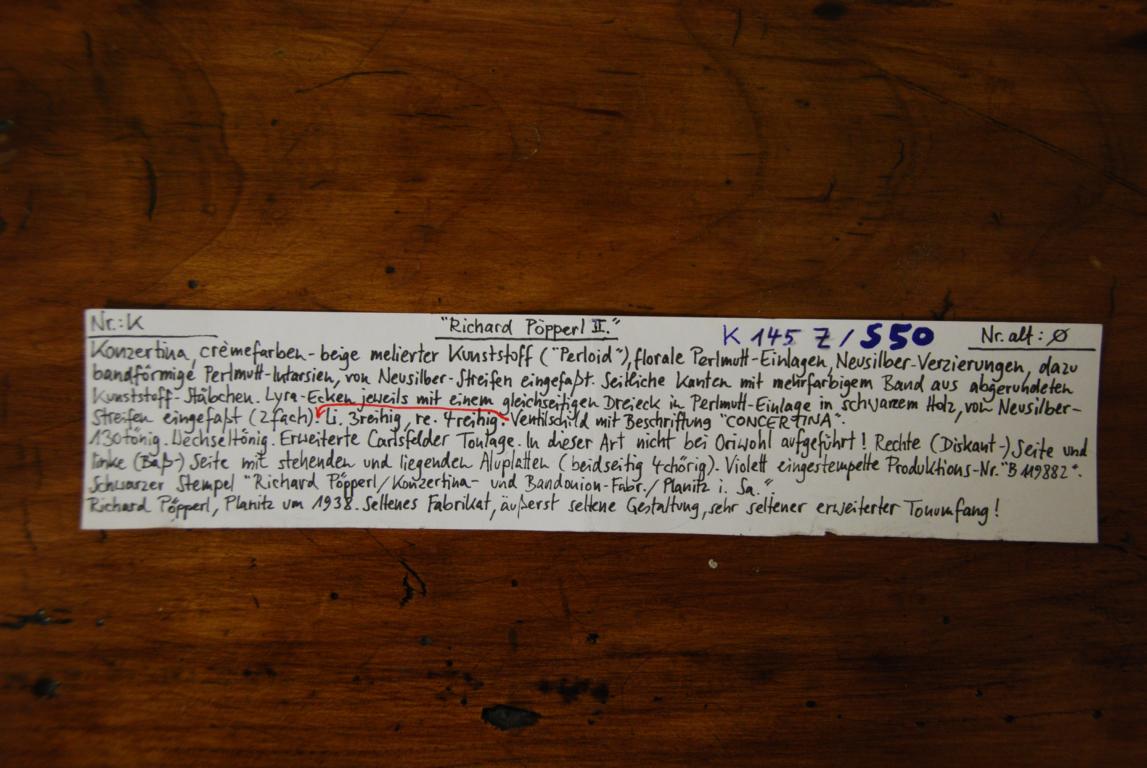 Nr.: K "Richard Pöpperl II." K 145 Z / S50 Nr. alt: ø
Konzertina, crèmefarben-beige melierter Kunststoff ("Perloid"), florale Perlmutt-Einlagen, Neusilber-Verzierungen, dazu
bandförmige Perlmutt-Intarsien, von Neusilber-Streifen eingefaßt. Seitliche Kanten mit mehrfarbigem Band aus abgerundeten
Kunststoff-Stäbchen. Lyra-Ecken jeweils mit einem gleichseitigen Dreieck in Perlmutt-Einlage in schwarzem Holz, von Neusilber-
Streifen eingefaßt (2fach). Li. 3reihig, re. 4reihig. Ventilschild mit Beschriftung "CONCERTINA".
130tönig. Wechseltönig. Erweiterte Carlsfelder Tonlage. In dieser Art nicht bei Oriwohl aufgeführt! Rechte (Diskant-) Seite und
linke (Baß-) Seite mit stehenden und liegenden Aluplatten (beidseitig 4chörig). Violett eingestempelte Produktions-Nr. "B 119882".
Schwarzer Stempel "Richard Pöpperl/Konzertina- und Bandonion-Fabr./ Planitz i. Sa."
Richard Pöpperl, Planitz um 1938. Seltenes Fabrikat, äußerst seltene Gestaltung, sehr seltener erweiterter Tonumfang!